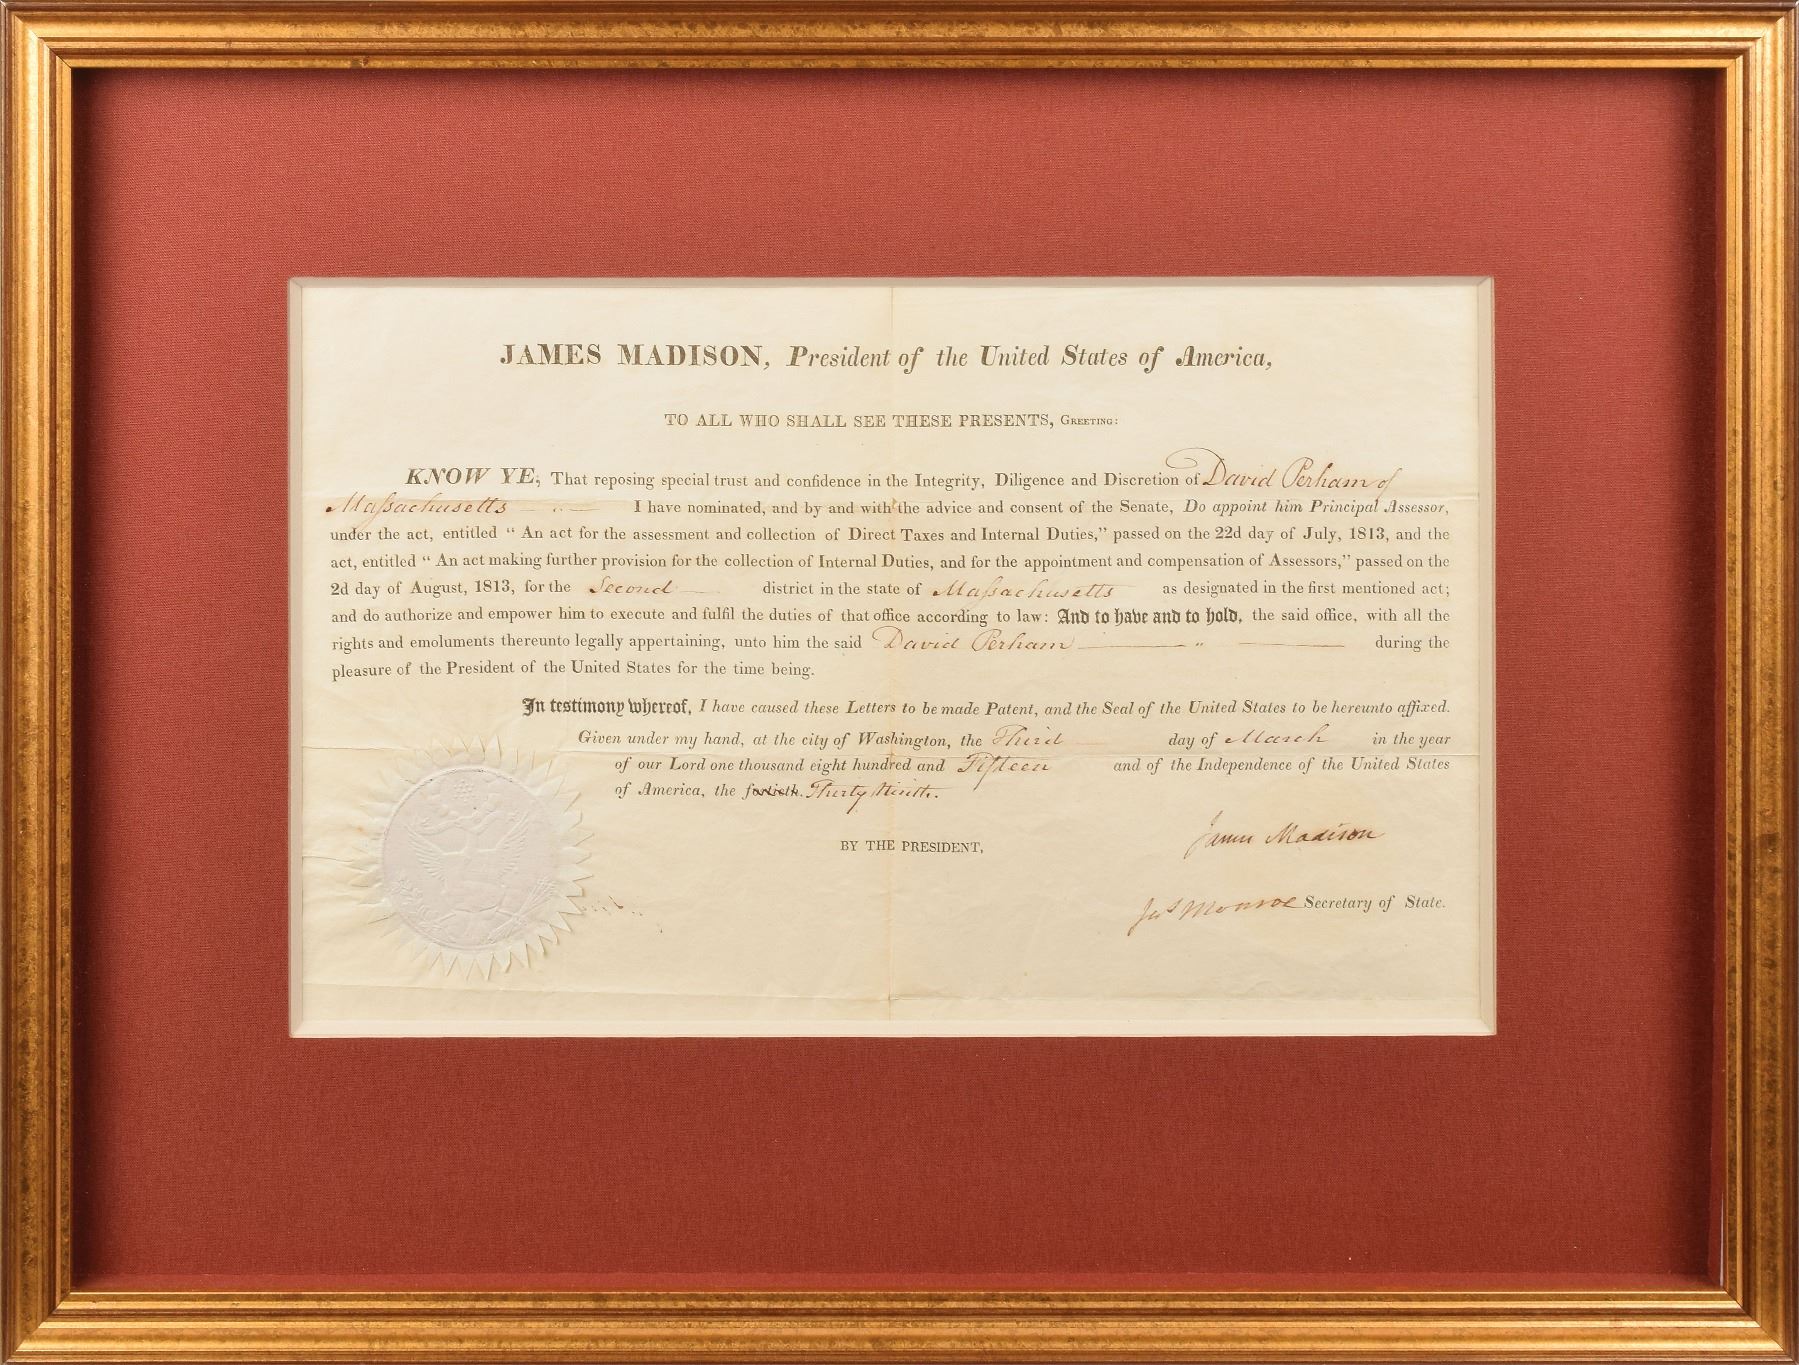 JAMES MADISON, President of the United States of America,
TO ALL WHO SHALL SEE THESE PRESENTS, GREETING:
KNOW YE; That reposing special trust and confidence in the Integrity, Diligence and Discretion of David Perham of
Massachusetts — „ — I have nominated, and by and with the advice and consent of the Senate, Do appoint him Principal Assessor,
under the act, entitled “ An act for the assessment and collection of Direct Taxes and Internal Duties,” passed on the 22d day of July, 1813, and the
act, entitled “ An act making further provision for the collection of Internal Duties, and for the appointment and compensation of Assessors,” passed on the
2d day of August, 1813, for the Second — district in the state of Massachusetts as designated in the first mentioned act;
and do authorize and empower him to execute and fulfil the duties of that office according to law: And to have and to hold, the said office, with all the
rights and emoluments thereunto legally appertaining, unto him the said David Perham — „ — during the
pleasure of the President of the United States for the time being.
In testimony whereof, I have caused these Letters to be made Patent, and the Seal of the United States to be hereunto affixed.
Given under my hand, at the city of Washington, the Third — day of March in the year
of our Lord one thousand eight hundred and Fifteen and of the Independence of the United States
of America, the fortieth. Thirty Ninth.
James Madison
BY THE PRESIDENT,
Jas Monroe Secretary of State.